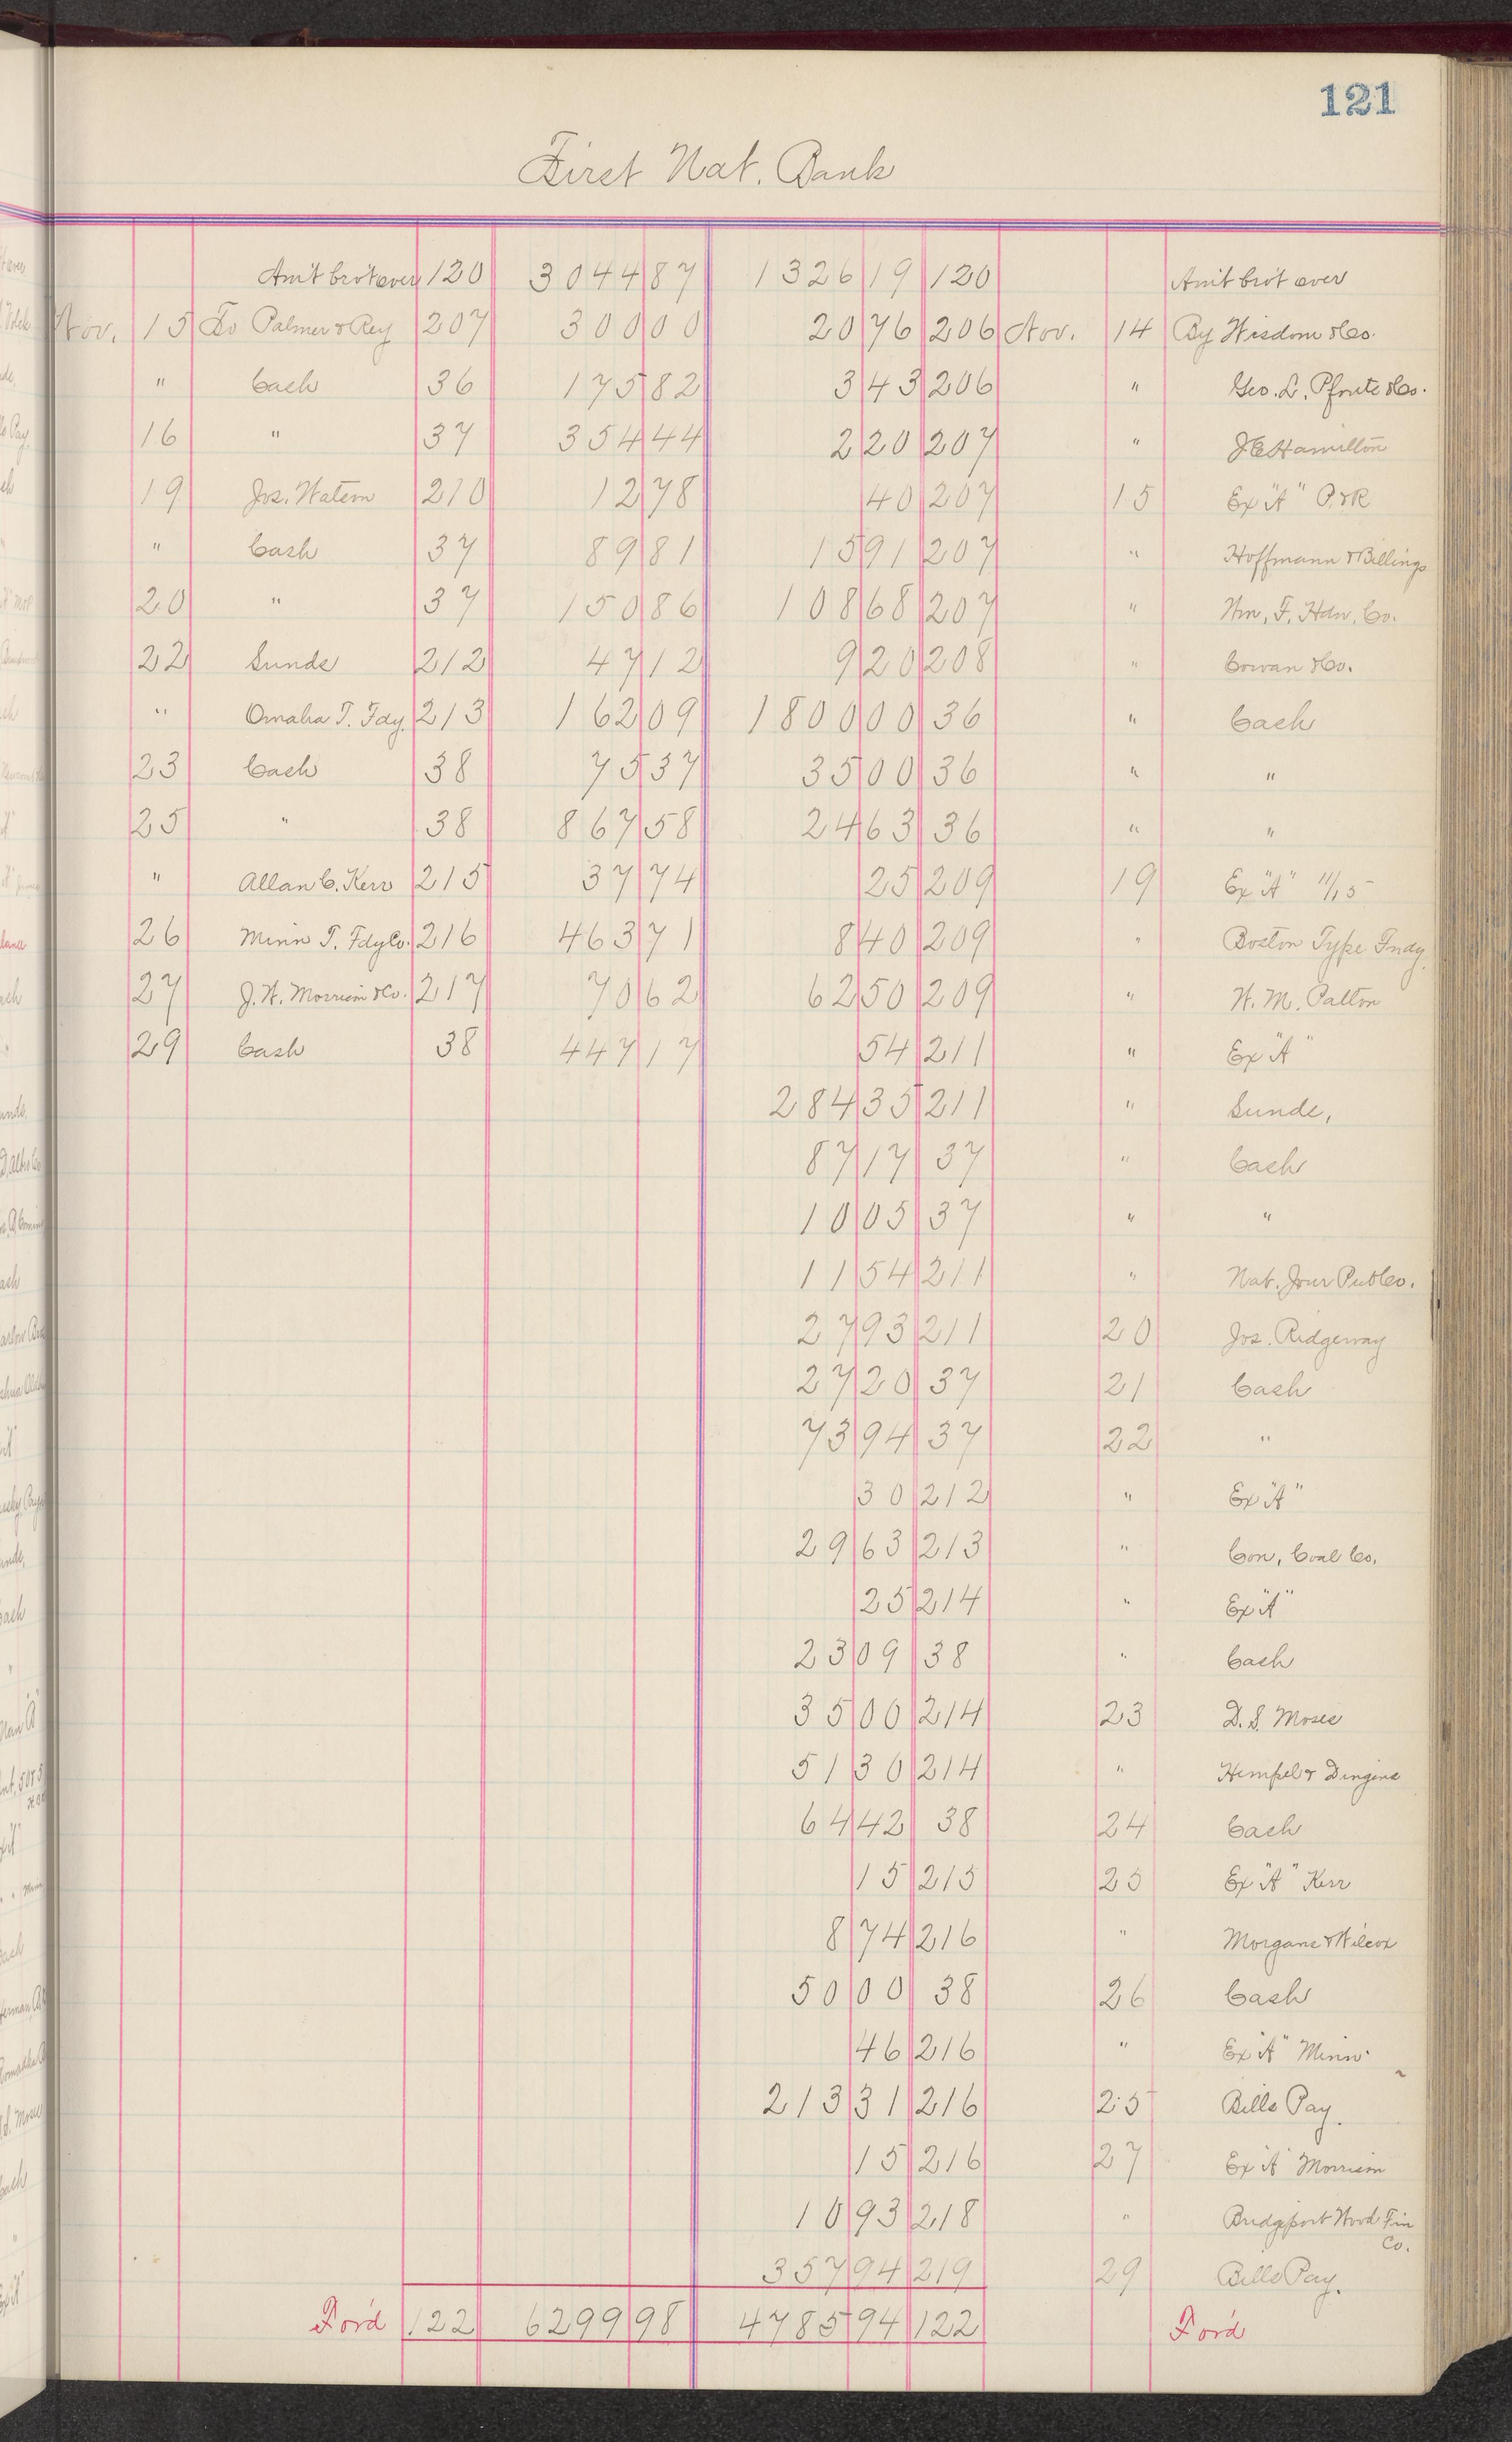 121
First Nat. Bank
Am't bro't over 120 3044 87 1326 19 120 Am't bro't over
Nov. 15 To Palmer & Rey 207 300 00 20 76 206 Nov. 14 By Wisdom & Co.
" Cash 36 175 82 3 43 206 " Geo. L. Pfouts & Co.
16 " 37 354 44 2 20 207 " J E Hamilton
19 Jos. Watern 210 12 78 40 207 15 Ex "A" P. & R
" Cash 37 89 81 15 91 207 " Hoffmann & Billings
20 " 37 150 86 108 68 207 " Wm. F. Hdw. Co.
22 Sunds 212 47 12 9 20 208 " Cowan & Co.
" Omaha T. Fdy. 213 162 09 1800 00 36 " Cash
23 Cash 38 75 37 35 00 36 " "
25 " 38 867 58 24 63 36 " "
" Allan C. Kerr 215 37 74 25 209 19 Ex "A" 11/15
26 Minn T. Fdy Co. 216 463 71 8 40 209 " Boston Type Fndy.
27 J. W. Morrison & Co. 217 70 62 62 50 209 " W. M. Patton
29 Cash 38 447 17 54 211 " Ex "A"
284 35 211 " Sunds,
87 17 37 " Cash
10 05 37 " "
11 54 211 " Nat. Jour Pub Co.
27 93 211 20 Jos. Ridgeway
27 20 37 21 Cash
73 94 37 22 "
30 212 " Ex "A"
29 63 213 " Con, Coal Co.
25 214 " Ex "A"
23 09 38 " Cash
35 00 214 23 D. S. Moses
51 30 214 " Hempel & Dingens
64 42 38 24 Cash
15 215 25 Ex "A" Kerr
8 74 216 " Morgans & Wilcox
50 00 38 26 Cash
46 216 " Ex "A" Minn.
213 31 216 25 Bills Pay.
15 216 27 Ex "A" Morrison
10 93 218 " Bridgeport Wood Fin
Co.
357 94 219 29 Bills Pay.
For'd 122 6299 98 4785 94 122 For'd